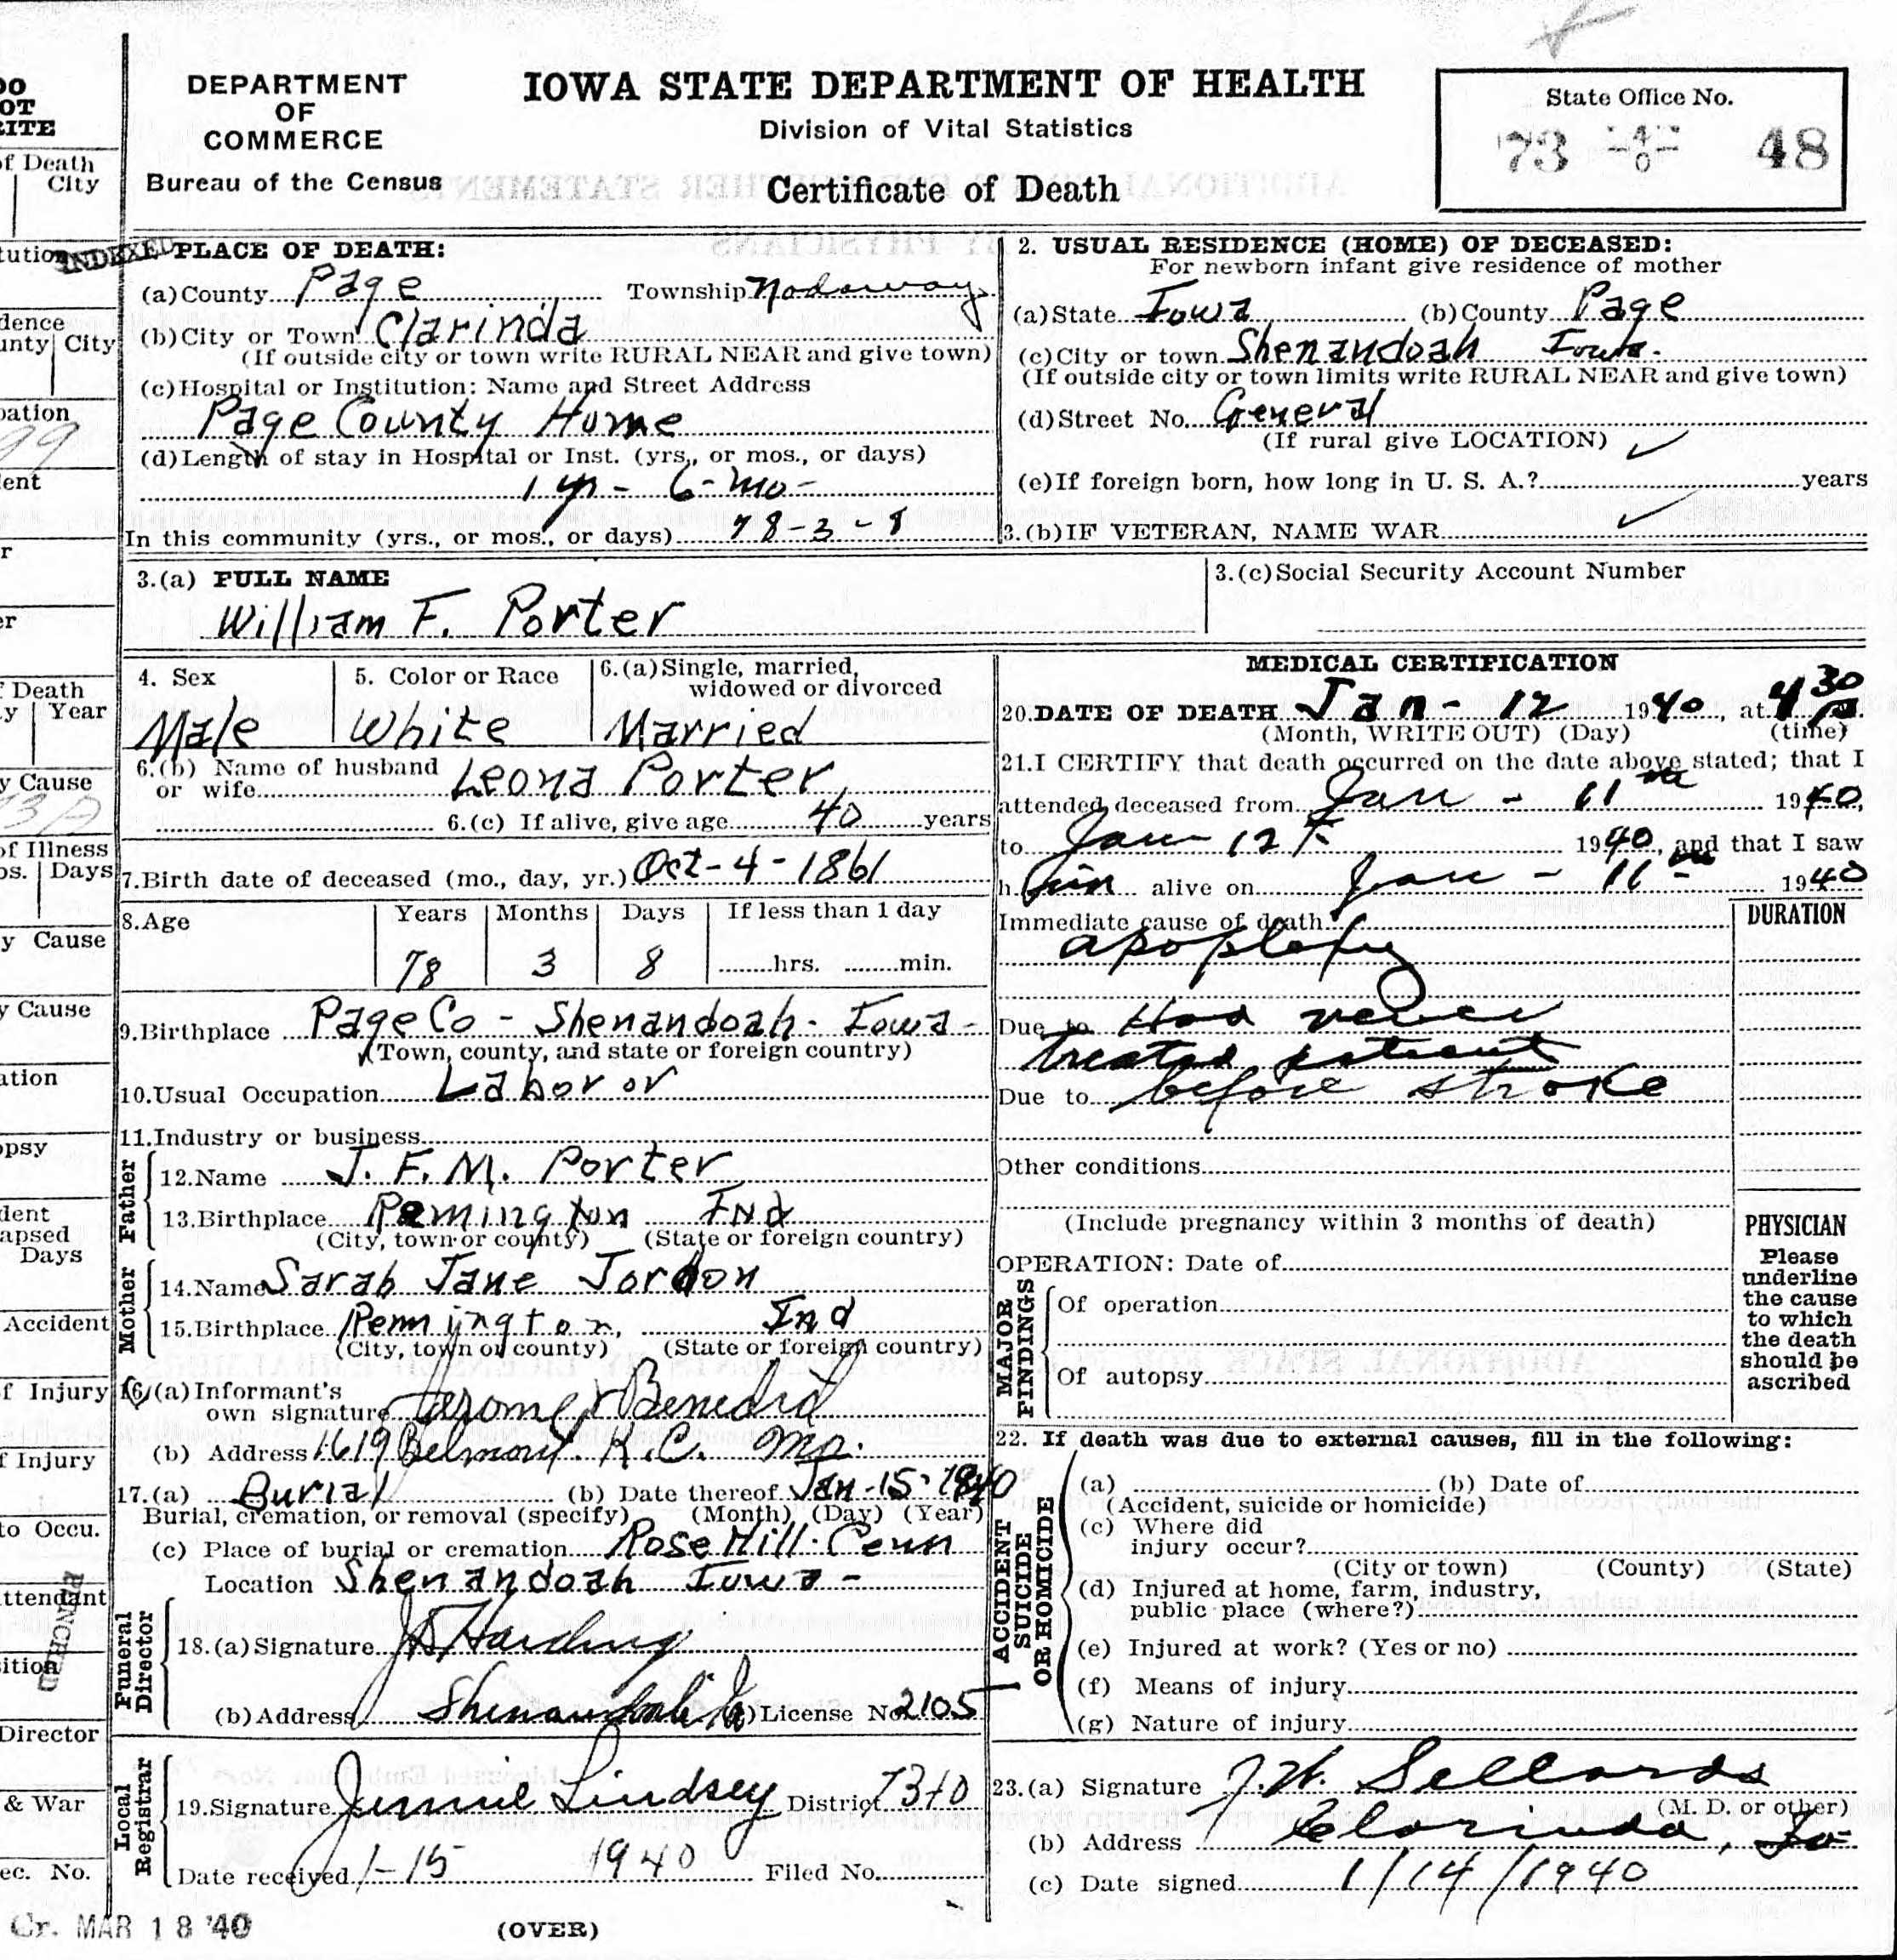 DEPARTMENT
OF
COMMERCE
Bureau of the Census
IOWA STATE DEPARTMENT OF HEALTH
Division of Vital Statistics
Certificate of Death
State Office No.
73 -40- 48
INDEXED PLACE OF DEATH:
(a) County Page Township Nodaway
(b) City or Town Clarinda
(If outside city or town write RURAL NEAR and give town)
(c) Hospital or Institution: Name and Street Address
Page County Home
(d) Length of stay in Hospital or Inst. (yrs., or mos., or days)
1 yr - 6 - mo -
In this community (yrs., or mos., or days) 78-3-8
2. USUAL RESIDENCE (HOME) OF DECEASED:
For newborn infant give residence of mother
(a) State Iowa (b) County Page
(c) City or town Shenandoah Iowa.
(If outside city or town limits write RURAL NEAR and give town)
(d) Street No. General
(If rural give LOCATION)
(e) If foreign born, how long in U. S. A.? years
3.(b) IF VETERAN, NAME WAR
3.(a) FULL NAME
William F. Porter
3.(c) Social Security Account Number
4. Sex
Male
5. Color or Race
White
6.(a) Single, married,
widowed or divorced
Married
6.(b) Name of husband
or wife Leona Porter
6.(c) If alive, give age 40 years
7. Birth date of deceased (mo., day, yr.) Oct-4-1861
8. Age Years Months Days If less than 1 day
78 3 8 hrs. min.
9. Birthplace Page Co - Shenandoah - Iowa -
(Town, county, and state or foreign country)
10. Usual Occupation Labor or
11. Industry or business
Father
12. Name J. F. M. Porter
13. Birthplace Remington Ind
(City, town or county) (State or foreign country)
Mother
14. Name Sarah Jane Jordon
15. Birthplace Remington, Ind
(City, town or county) (State or foreign country)
16.(a) Informant's
own signature Jerome Benedict
(b) Address 1619 Belmont. K.C. Mo.
17.(a) Burial (b) Date thereof Jan-15-1940
Burial, cremation, or removal (specify) (Month) (Day) (Year)
(c) Place of burial or cremation Rose Hill Cem
Location Shenandoah Iowa -
Funeral Director
18.(a) Signature Harding
(b) Address Shenandoah Ia License No. 2105
Local Registrar
19. Signature Jennie Lindsey District 7340
Date received 1-15 1940 Filed No.
MEDICAL CERTIFICATION
20. DATE OF DEATH Jan - 12 1940, at 4 30
(Month, WRITE OUT) (Day) (time)
21. I CERTIFY that death occurred on the date above stated; that I
attended deceased from Jan - 11th 1940,
to Jan 12 1940, and that I saw
him alive on Jan - 11th 1940
Immediate cause of death
apoplexy
DURATION
Due to Had never
treated patient
Due to before stroke
Other conditions
(Include pregnancy within 3 months of death)
OPERATION: Date of
MAJOR FINDINGS
Of operation
Of autopsy
PHYSICIAN
Please
underline
the cause
to which
the death
should be
ascribed
22. If death was due to external causes, fill in the following:
ACCIDENT
SUICIDE
OR HOMICIDE
(a) (b) Date of
(Accident, suicide or homicide)
(c) Where did
injury occur?
(City or town) (County) (State)
(d) Injured at home, farm, industry,
public place (where?)
(e) Injured at work? (Yes or no)
(f) Means of injury
(g) Nature of injury
23.(a) Signature J.W. Sellards
(M. D. or other)
(b) Address Clarinda, Ia
(c) Date signed 1/14/1940
Cr. MAR 18 '40
(OVER)
PUNCHED
of Death
City
Death
Year
Cause
of Illness
Days
Cause
Cause
Accident
Injury
Injury
to Occu.
Director
& War
No.